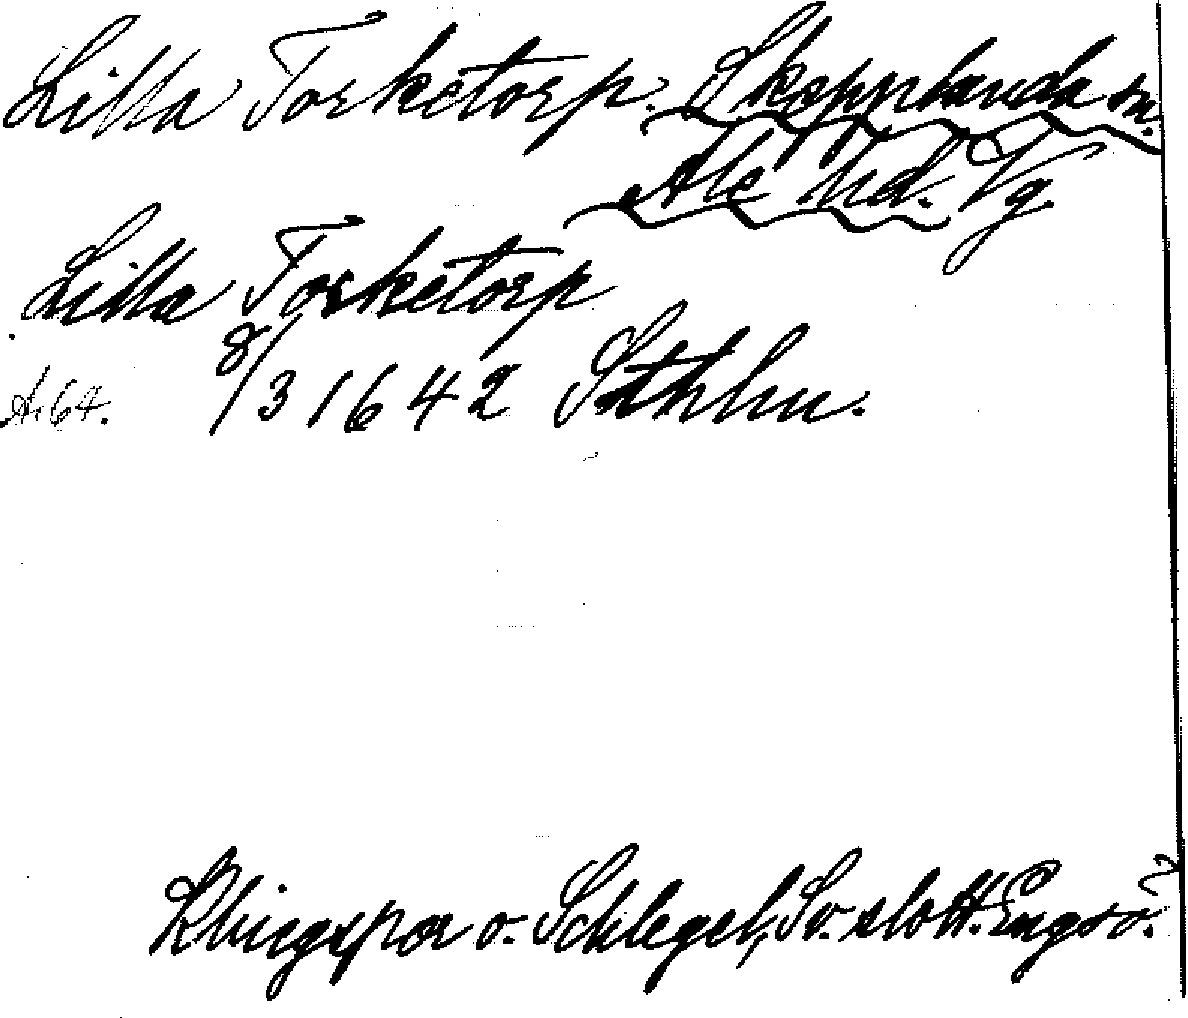 Lilla Torketorp. Skepplanda sn.
Ale hd. Vg
Lilla Torketorp
A. 64. 8/3 1642 Sthlm.
Klingspor o. Schlegel, Sv. slott. Engsö.